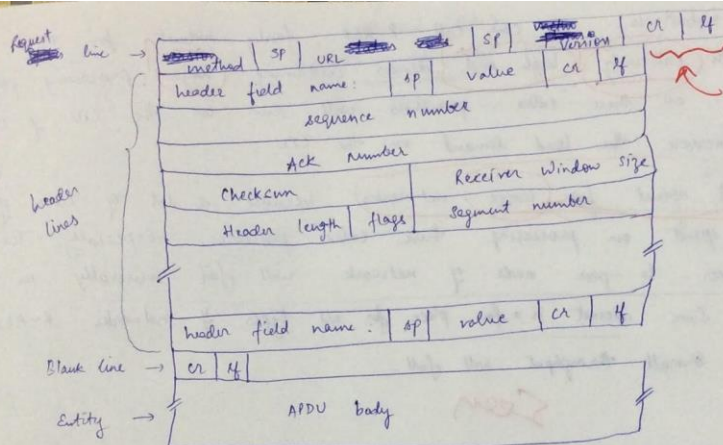 Request line → method | sp | URL | sp | Version | cr | lf
header field name: | sp | value | cr | lf
sequence number
Ack number
header lines
Checksum | Receiver Window size
Header length | flags | segment number
header field name: | sp | value | cr | lf
Blank line → cr | lf
Entity → APDU body